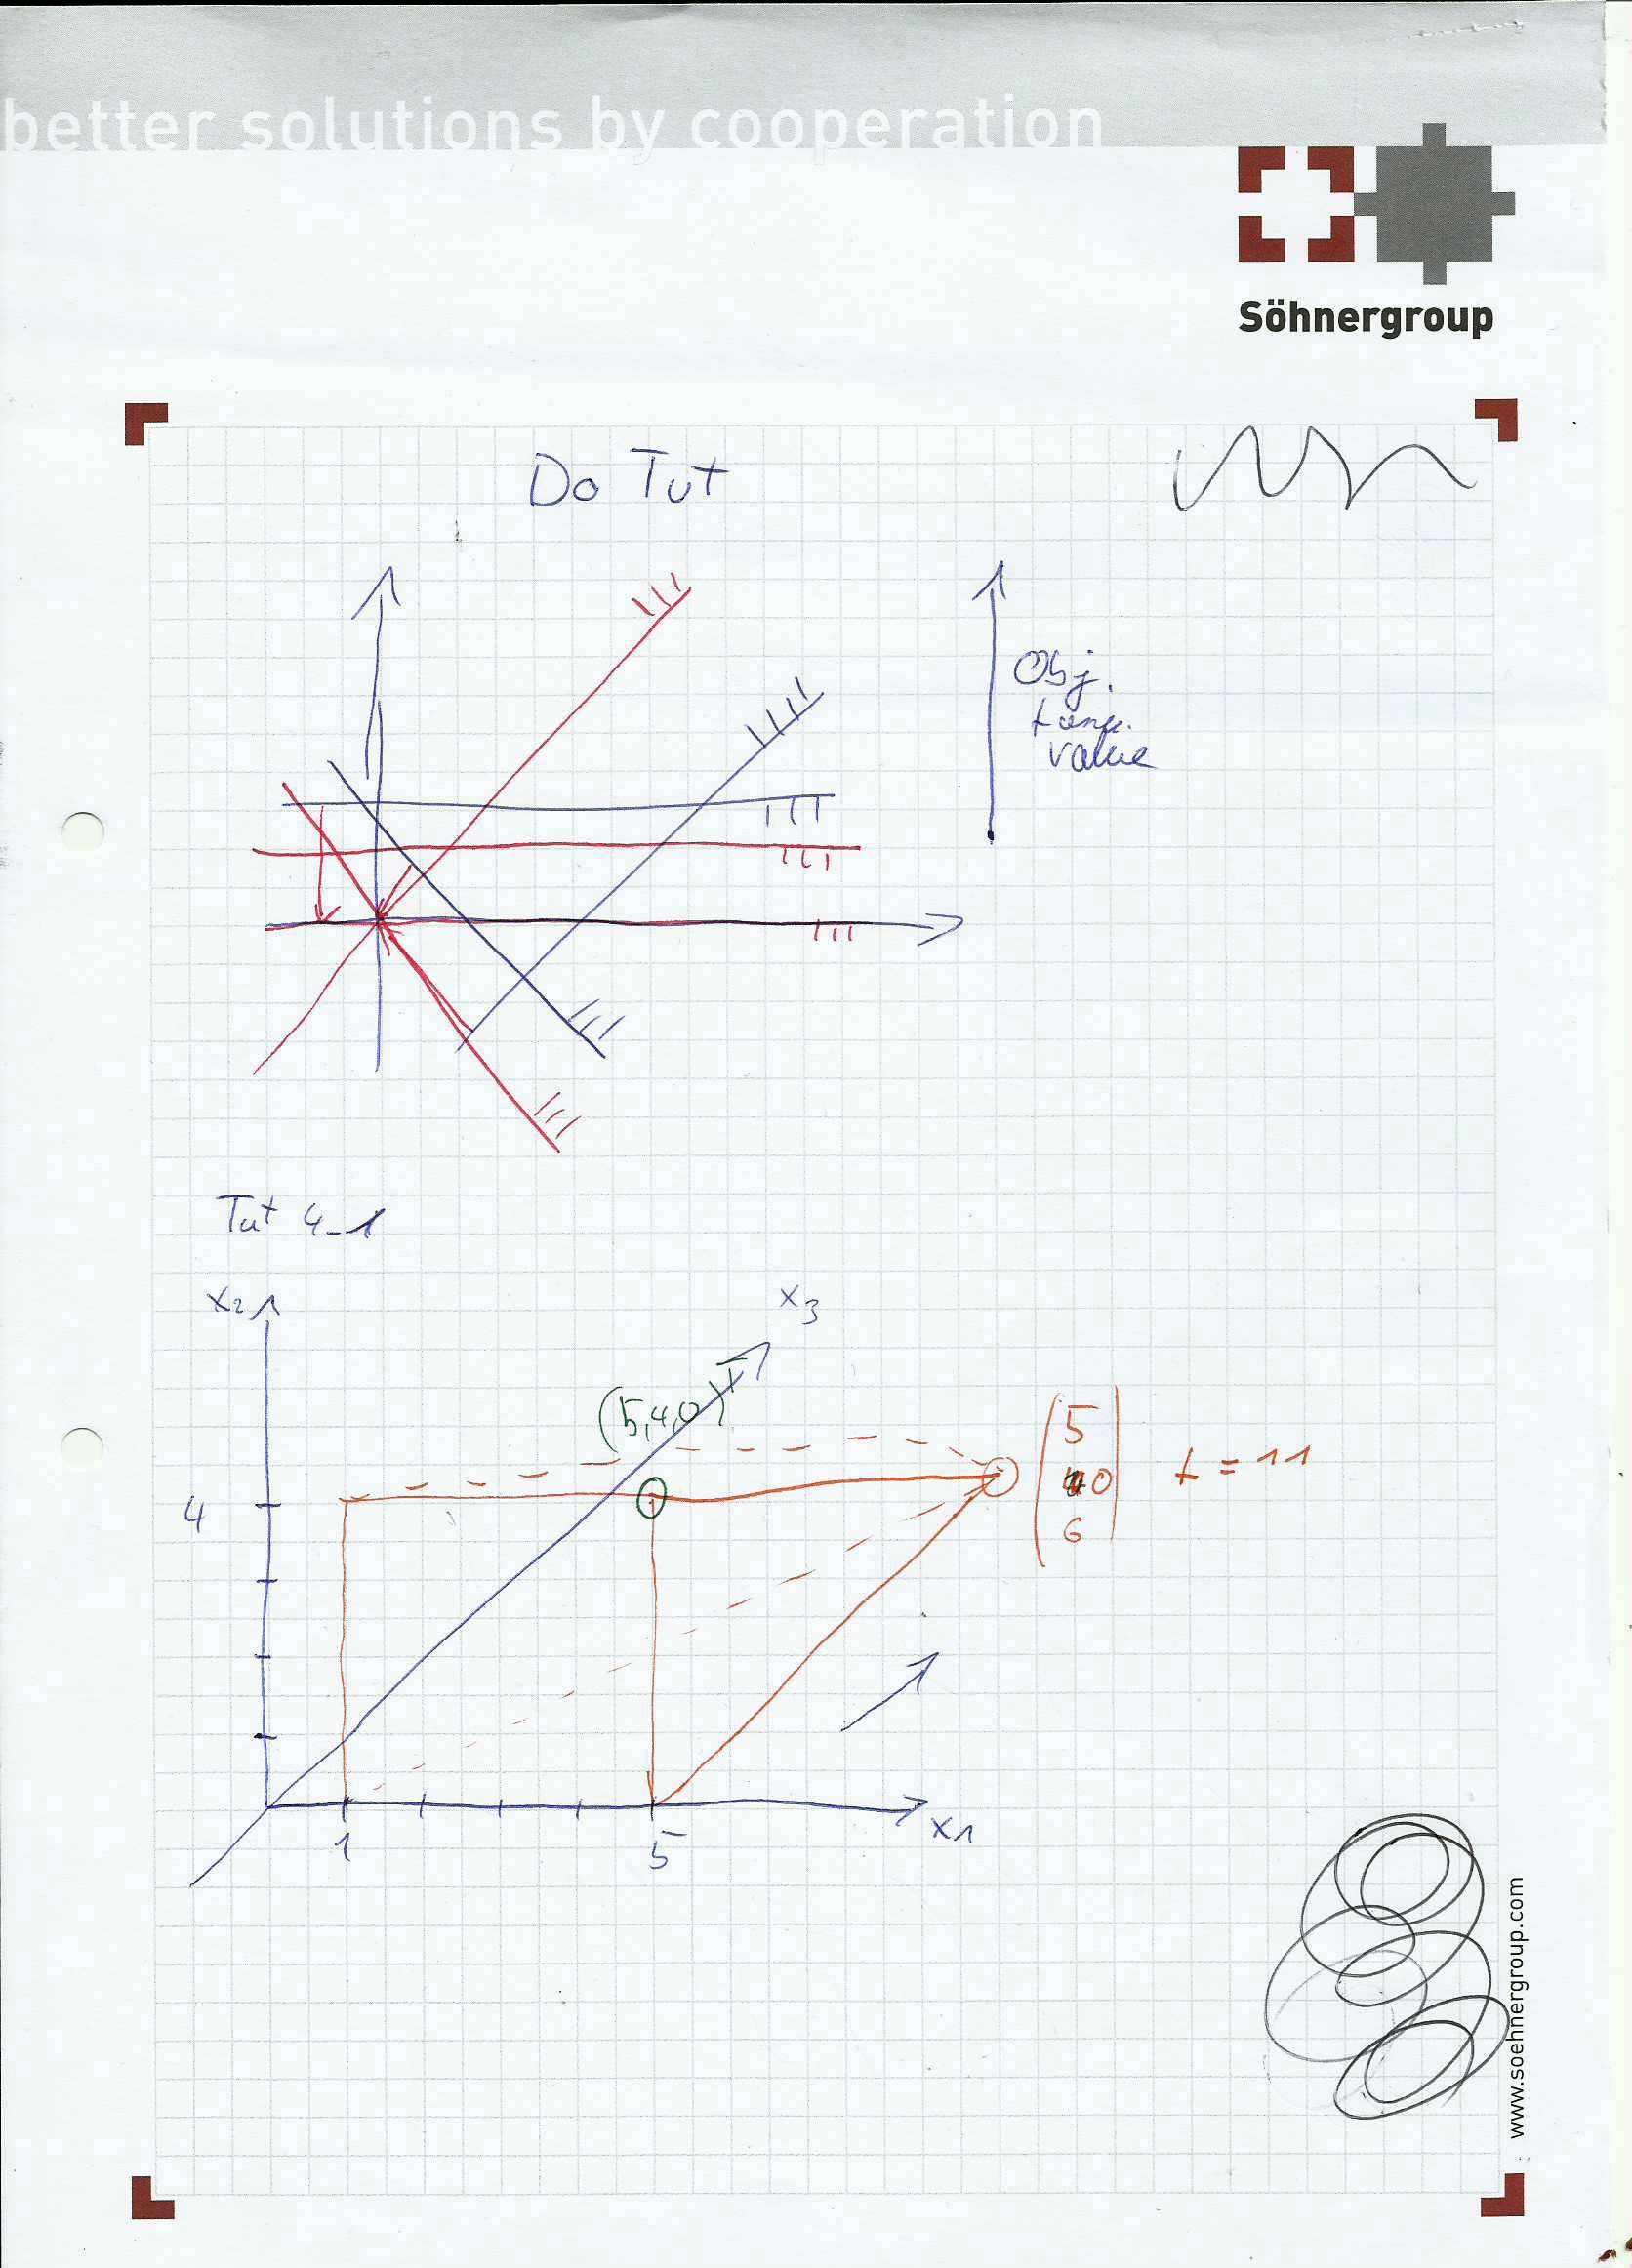 better solutions by cooperation
Söhnergroup
Do Tut
Obj.
value
Tut 4-1
x2
x3
(5,4,0)T
5
0
6
t = 11
4
1
5
x1
www.soehnergroup.com